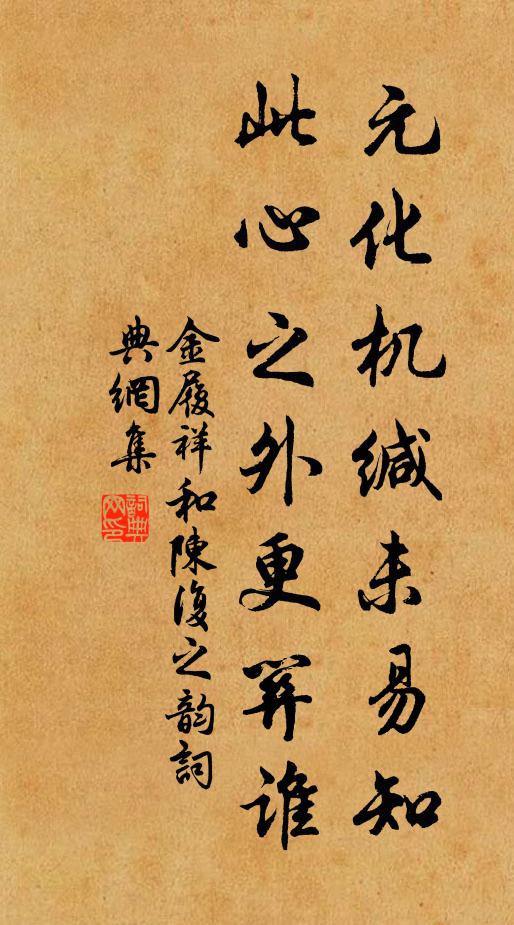 元化机緘未易知
此心之外更誰
金履祥和陳復之韵詞
典網集
詞典
网印